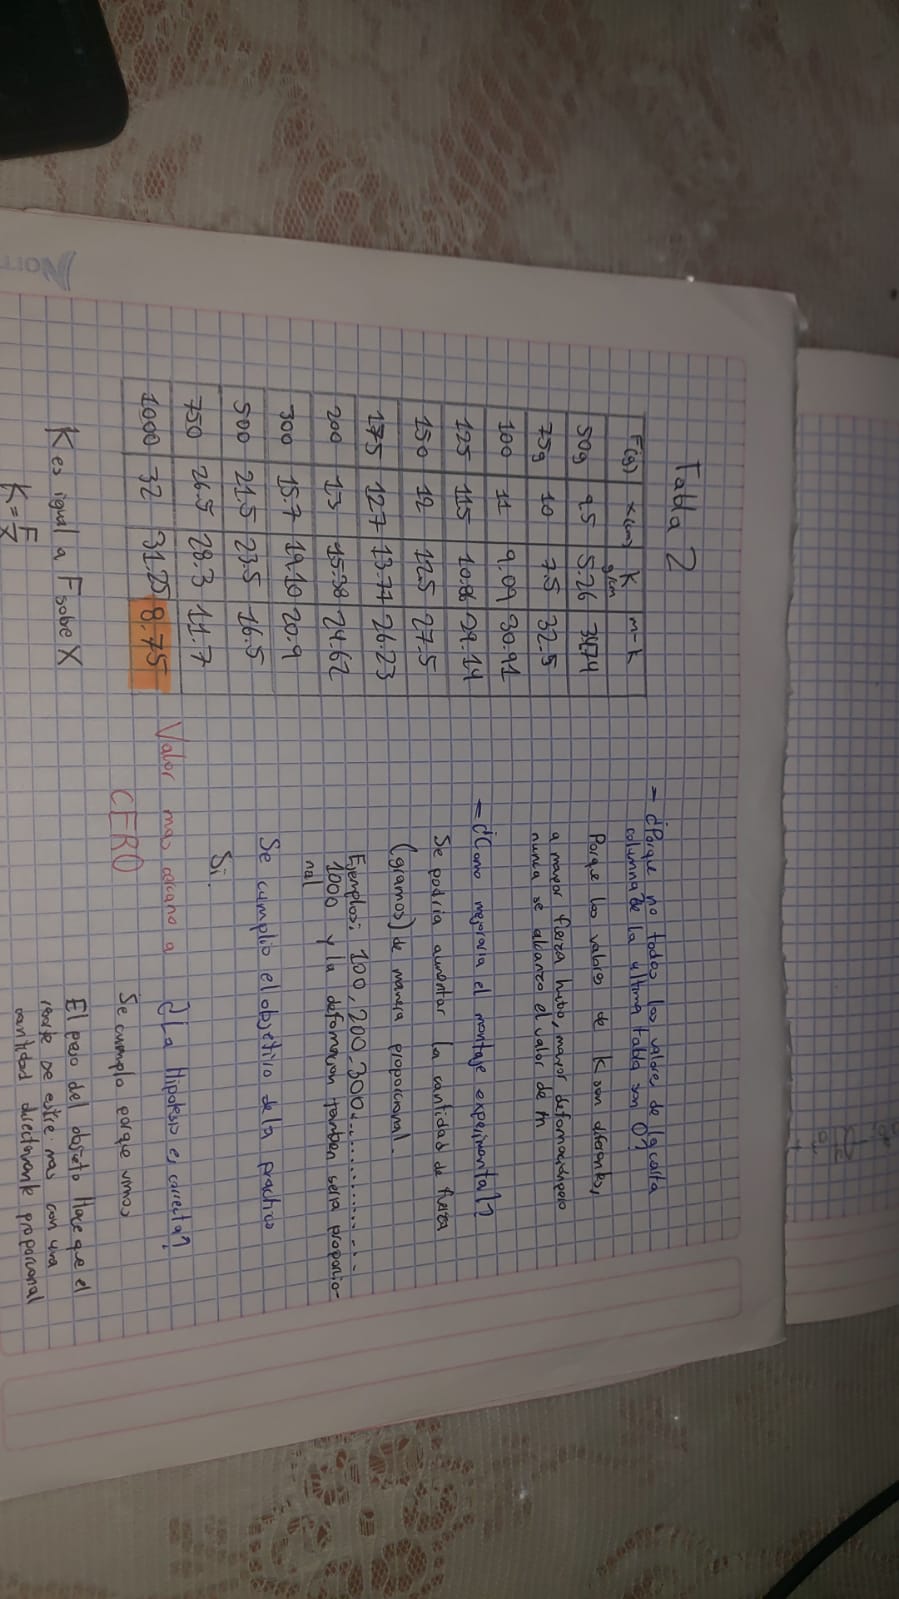 Tabla 2
F(g) x(cm) K g/cm m-k
50g 9.5 5.26 34.74
75g 10 7.5 32.5
100 11 9.09 30.91
125 11.5 10.86 29.14
150 12 12.5 27.5
175 12.7 13.77 26.23
200 13 15.38 24.62
300 15.7 19.10 20.9
500 21.5 23.5 16.5
750 26.5 28.3 11.7
1000 32 31.25 8.75
Valor mas cercano a
CERO
K es igual a F sobe X
K = F/X
- ¿Porque no todos los valore de la cuarta
columna de la ultima tabla son 0?
Porque los valores de K son diferentes,
a mayor fuerza hubo, mayor deformacion pero
nunca se alcanzo el valor de m
- ¿Como mejoraria el montage experimental?
Se podria aumentar la cantidad de fuerza
(gramos) de manera proporcional.
Ejemplos: 100, 200, 300..............
1000 y la deformacion tambien sera proporcio-
nal
Se cumplio el objetivo de la practica
Si.
¿La Hipotesis es correcta?
Se cumplo porque vimos
El peso del objeto Hace que el
se estire mas con una
cantidad directamente proporcional
Norma